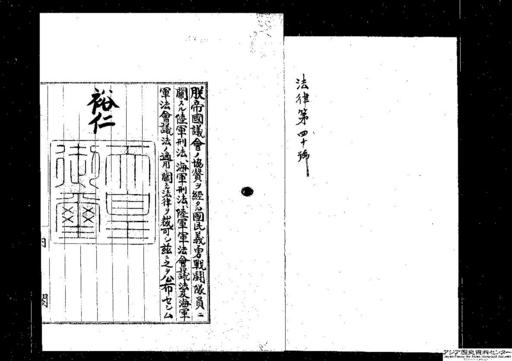 法律第四十號
朕帝國議會ノ協贊ヲ經タル國民義勇戰鬪隊員ニ
關スル陸軍刑法、海軍刑法、陸軍軍法會議法及海軍
軍法會議法ノ適用ニ關スル法律ヲ裁可シ玆ニ之ヲ公布セシム
裕仁
天皇
御璽
内
閣
アジア歴史資料センター